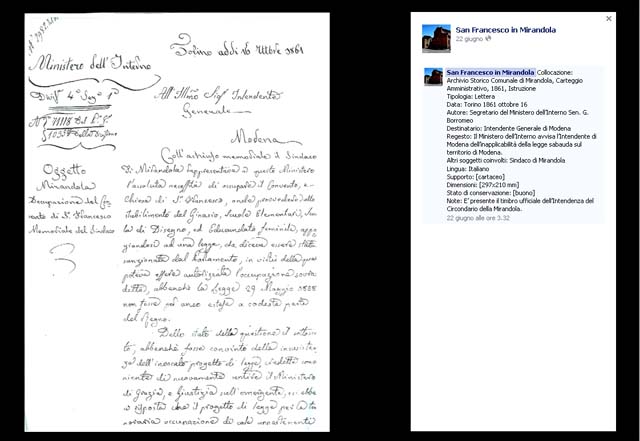 N° 7982
Ministero dell'Interno
Torino addì 16 8bre 1861
Div.e 4a Sez.e 1a
All' Ill.mo Sig.r Intendente
Generale
Modena
Oggetto
Mirandola
Occupazione del Con
vento di S.n Francesco
Memoriale del Sindaco
Coll'achiuso memoriale il Sindaco
di Mirandola rappresentava a questo Ministero
l'assoluta necessità di occupare il Convento, e
Chiesa di S.n Francesco, onde provvedere allo
stabilimento del Ginasio, Scuole Elementari, Scuo
la di Disegno, ed Educandato feminile, appog
giandosi ad una legge, che diceva essere stata
sanzionata dal Parlamento, in virtù della quale
poteva essere autorizzata l'occupazione sovra
detta, abbenchè la Legge 29 Maggio 1855
non fosse per anco estesa a codesta parte
del Regno.
Dello stato della questione il sottoscrit
to, abbenchè fosse convinto della inesisten
za dell'invocato progetto di legge, credette conve
niente di nuovamente sentire il Ministero
di Grazia, e Giustizia sull'emergente, ed ebbe
a risposta che il progetto di legge per la tem
poraria occupazione di case
San Francesco in Mirandola
22 giugno
San Francesco in Mirandola Collocazione:
Archivio Storico Comunale di Mirandola, Carteggio
Amministrativo, 1861, Istruzione
Tipologia: Lettera
Data: Torino 1861 ottobre 16
Autore: Segretario del Ministero dell'Interno Sen. G.
Borromeo
Destinatario: Intendente Generale di Modena
Regesto: Il Ministero dell'Interno avvisa l'Intendente di
Modena dell'inapplicabilità della legge sabauda sul
territorio di Modena.
Altri soggetti coinvolti: Sindaco di Mirandola
Lingua: Italiano
Supporto: [cartaceo]
Dimensioni: [297x210 mm]
Stato di conservazione: [buono]
Note: E' presente il timbro ufficiale dell'Intendenza del
Circondario della Mirandola.
22 giugno alle ore 3.32